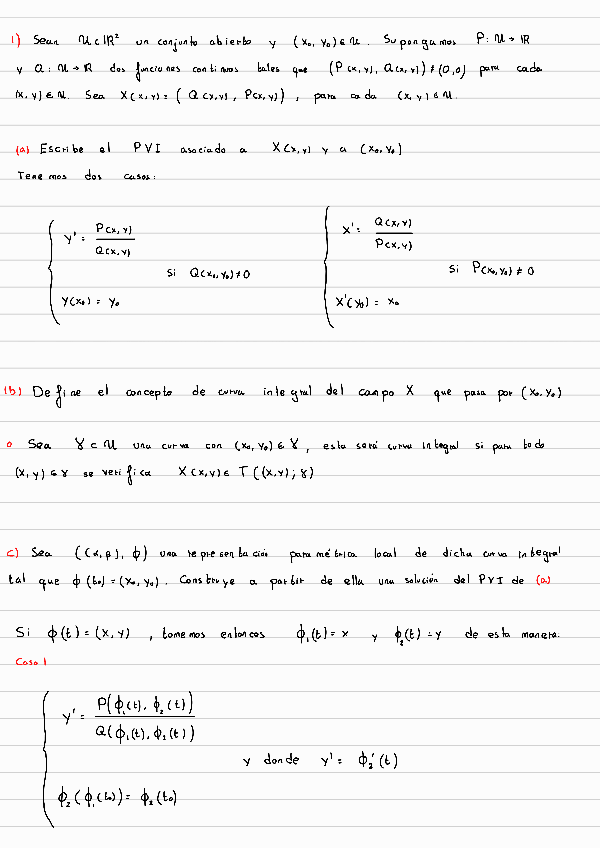 1) Sean U ⊂ IR² un conjunto abierto y (x₀, y₀) ∈ U. Supongamos P: U → IR
y Q: U → IR dos funciones continuas tales que (P(x,y), Q(x,y)) ≠ (0,0) para cada
(x, y) ∈ U. Sea X(x,y) = ( Q(x,y), P(x,y) ), para cada (x, y) ∈ U.
(a) Escribe el PVI asociado a X(x,y) y a (x₀, y₀)
Tenemos dos casos:
y' = P(x,y) / Q(x,y)
si Q(x₀, y₀) ≠ 0
y(x₀) = y₀
x' = Q(x,y) / P(x,y)
si P(x₀, y₀) ≠ 0
x'(y₀) = x₀
(b) Define el concepto de curva integral del campo X que pasa por (x₀, y₀)
o Sea γ ⊂ U una curva con (x₀, y₀) ∈ γ, esta será curva integral si para todo
(x, y) ∈ γ se verifica X(x,y) ∈ T((x,y); γ)
c) Sea ((α, β), φ) una representación paramétrica local de dicha curva integral
tal que φ(t₀) = (x₀, y₀). Construye a partir de ella una solución del PVI de (a)
Si φ(t) = (x, y), tomemos entonces φ₁(t) = x y φ₂(t) = y de esta manera:
Caso 1
y' = P(φ₁(t), φ₂(t)) / Q(φ₁(t), φ₂(t))
y donde y' = φ₂'(t)
φ₂(φ₁(t₀)) = φ₂(t₀)